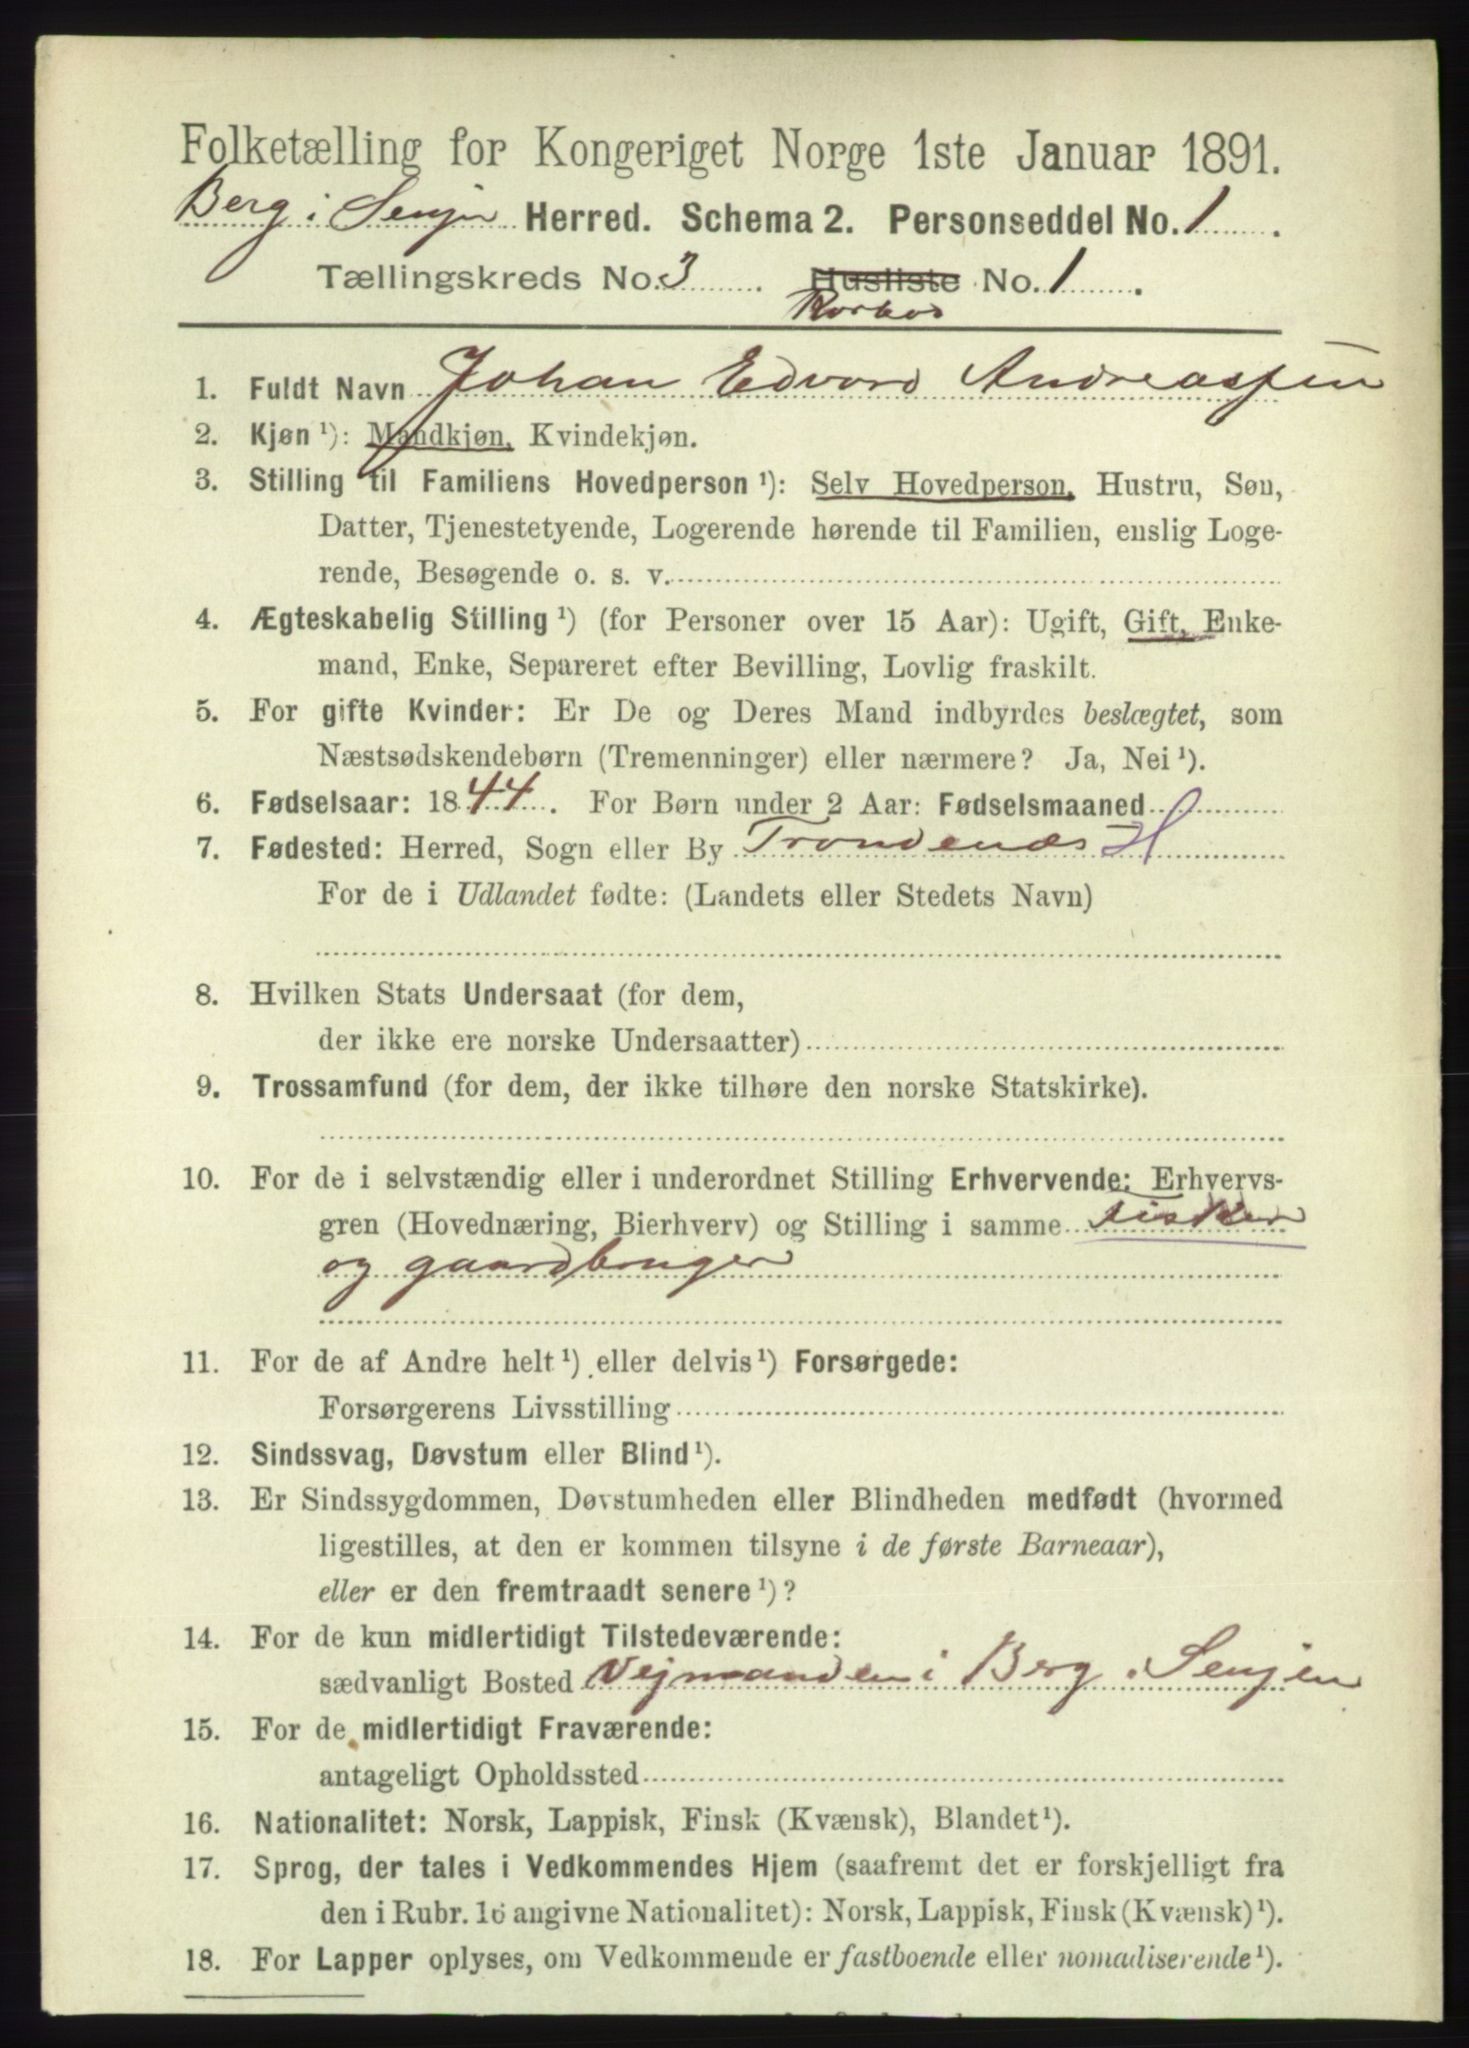 Folketælling for Kongeriget Norge 1ste Januar 1891.
Berg i Senjen Herred. Schema 2. Personseddel No. 1.
Tællingskreds No. 3. Husliste No. 1.
Rorbod
1. Fuldt Navn Johan Edvard Andreassen
2. Kjøn ¹): Mandkjøn, Kvindekjøn.
3. Stilling til Familiens Hovedperson ¹): Selv Hovedperson, Hustru, Søn,
Datter, Tjenestetyende, Logerende hørende til Familien, enslig Loge-
rende, Besøgende o. s. v.
4. Ægteskabelig Stilling ¹) (for Personer over 15 Aar): Ugift, Gift, Enke-
mand, Enke, Separeret efter Bevilling, Lovlig fraskilt.
5. For gifte Kvinder: Er De og Deres Mand indbyrdes beslægtet, som
Næstsødskendebørn (Tremenninger) eller nærmere? Ja, Nei ¹).
6. Fødselsaar: 1844. For Børn under 2 Aar: Fødselsmaaned
7. Fødested: Herred, Sogn eller By Trondenæs H
For de i Udlandet fødte: (Landets eller Stedets Navn)
8. Hvilken Stats Undersaat (for dem,
der ikke ere norske Undersaatter)
9. Trossamfund (for dem, der ikke tilhøre den norske Statskirke).
10. For de i selvstændig eller i underordnet Stilling Erhvervende: Erhvervs-
gren (Hovednæring, Bierhverv) og Stilling i samme fisker
og gaardbruger
11. For de af Andre helt ¹) eller delvis ¹) Forsørgede:
Forsørgerens Livsstilling
12. Sindssvag, Døvstum eller Blind ¹).
13. Er Sindssygdommen, Døvstumheden eller Blindheden medfødt (hvormed
ligestilles, at den er kommen tilsyne i de første Barneaar),
eller er den fremtraadt senere ¹)?
14. For de kun midlertidigt Tilstedeværende:
sædvanligt Bosted Vejmanden i Berg i Senjen
15. For de midlertidigt Fraværende:
antageligt Opholdssted
16. Nationalitet: Norsk, Lappisk, Finsk (Kvænsk), Blandet ¹).
17. Sprog, der tales i Vedkommendes Hjem (saafremt det er forskjelligt fra
den i Rubr. 16 angivne Nationalitet): Norsk, Lappisk, Finsk (Kvænsk) ¹).
18. For Lapper oplyses, om Vedkommende er fastboende eller nomadiserende ¹).